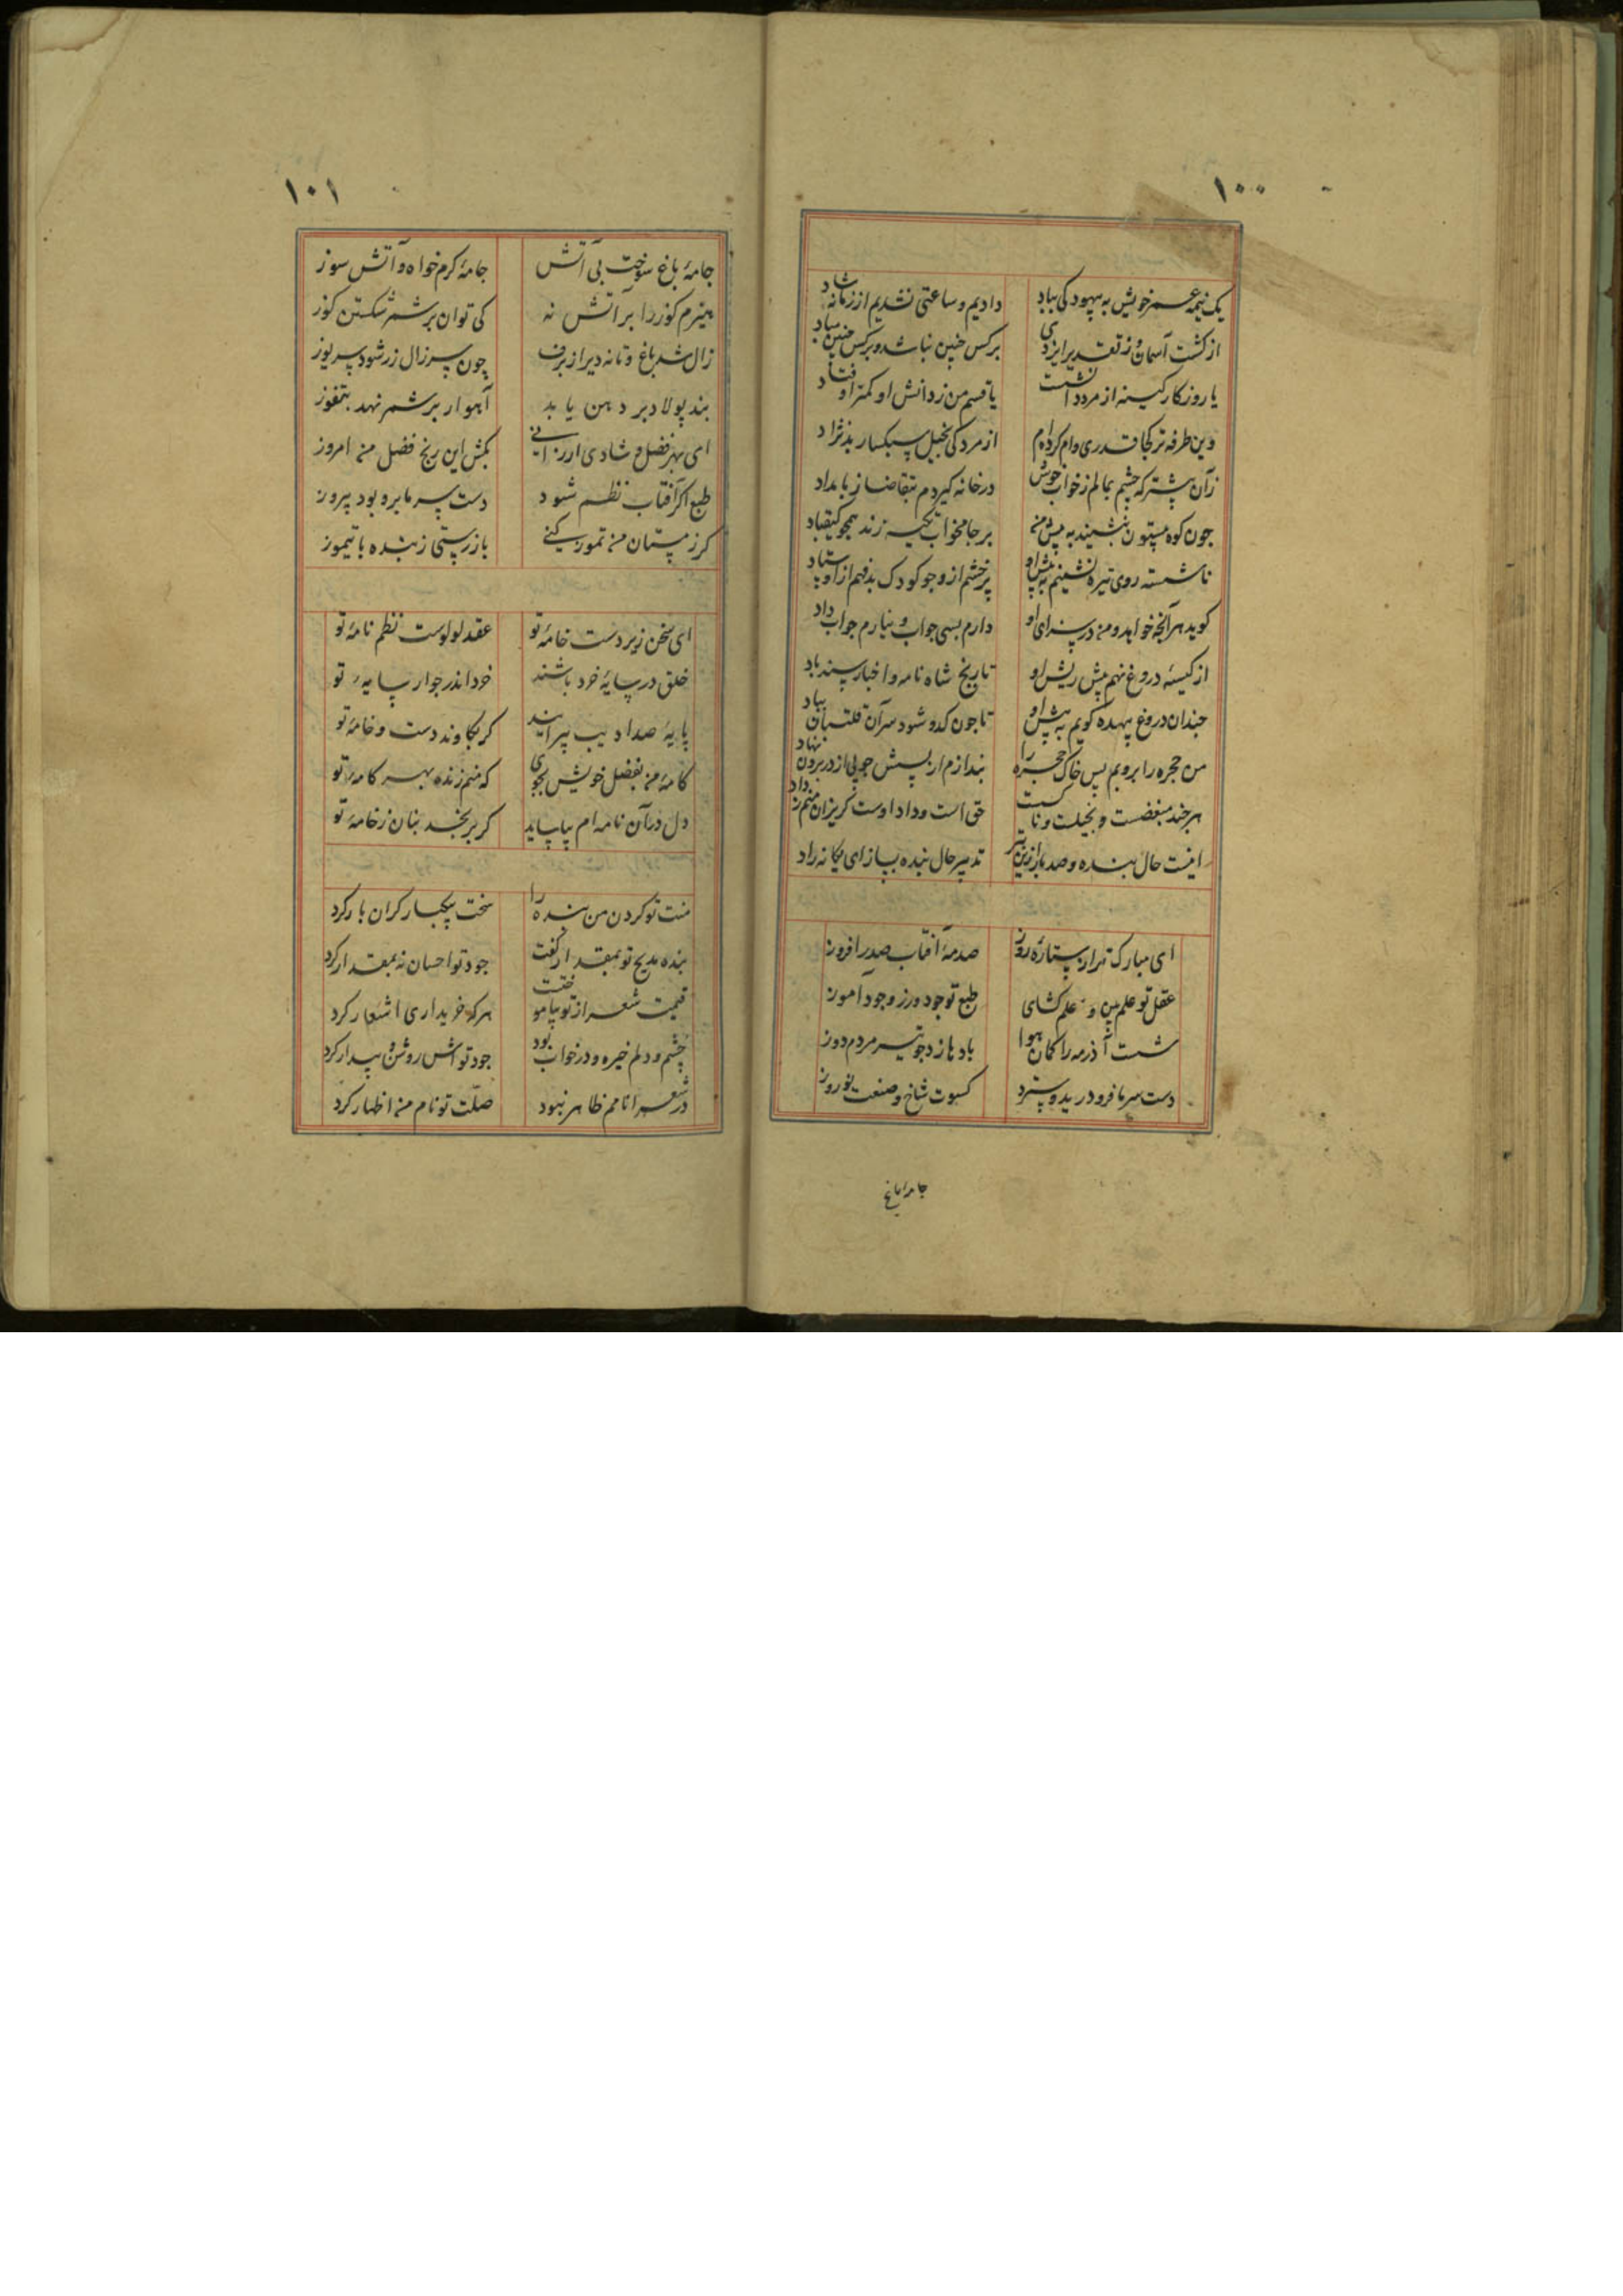 ۱۰۰
یک نیمه عمر خویش به بیهودگی بباد دادیم و ساعتی نشدیم از زمانه شاد
از گشت آسمان و ز تقدیر ایزدی برکس چنین نباشد و برکس چنین مباد
یا روزگار کینه از مرد دانشت یا قسم من ز دانش او کمتر اوفتاد
وین طرفه تر کجا قدری وام کرده‌ام از مردکی بخیل سبکسار بدنژاد
زآن پیشتر که چشم بمالم ز خواب خوش در خانه گیردم بتقاضا ز بامداد
چون کوه بیستون بنشیند به پیش من بر جامخواب تکیه زند همچو کیقباد
ناشسته روی تیره نشینم به پیش او پرخشم ازو چو کودک بدفهم از اوستاد
گوید هر آنچه خواهد و من در سزای او دارم بسی جواب و نیارم جواب داد
از کیسه دروغ نهم پیش ریش او تاریخ شاه نامه و اخبار سندباد
چندان دروغ بیهده گویم به پیش او تا چون کدو شود سر آن قلتبان بباد
من حجره را بروبم پس خاک حجره را بندازم از پسش چو پی از در برون نهاد
هرچند مبغضست و بخیلست و ناکست حق است و داد اوست گریزان منم ز داد
اینست حال بنده و صد بار ازین بتر تدبیر حال بنده بساز ای یگانه راد
ای مبارک تر از ستاره روز صدمهٔ آفتاب صدر افروز
عقل تو علم بین و علم گشای طبع تو جود ورز و جود آموز
شست آذرمه را کمان هوا باد بازد چو تیر مردم دوز
دست سرما فرو درید و سترد کسوت شاخ و صنعت نوروز
جامهٔ باغ
۱۰۱
جامهٔ باغ سوخت بی آتش جامهٔ گرم خواه و آتش سوز
هیزم گوز را بر آتش نه کی توان بر شمر شکستن گوز
زال شد باغ و تا نه دیر از برف چون سر زال زر شود سر یوز
بند پولاد بر دهن یابد آهو ار بر شمر نهد بتفوز
ای بهر فضل و شادی ارزانی بکش این رنج فضل من امروز
طبع اگر آفتاب نظم شود دست سرما برو بود پیروز
گر زمستان من تموز کنی باز رستی ز بنده تا بتموز
ای سخن زیر دست خامهٔ تو عقد لولوست نظم نامهٔ تو
خلق در سایهٔ خرد باشند خرد اندر جوار سایهٔ تو
پایهٔ صد ادیب بیرایند گر بکاوند دست و خامهٔ تو
کامهٔ من بفضل خویش بجوی که منم زنده بهر کامهٔ تو
دل در آن نامه‌ام بیاساید گر برنجد بنان ز خامهٔ تو
منت تو گردن من بنده را سخت سبکبار گران بار کرد
بنده مدیح تو بمقدار گفت جود تو احسان نه بمقدار کرد
قیمت شعر از تو بیاموخت هرکه خریداری اشعار کرد
چشم و دلم خیره و در خواب بود جود تواش روشن و بیدار کرد
در شعرا نامم ظاهر نبود صلت تو نام من اظهار کرد